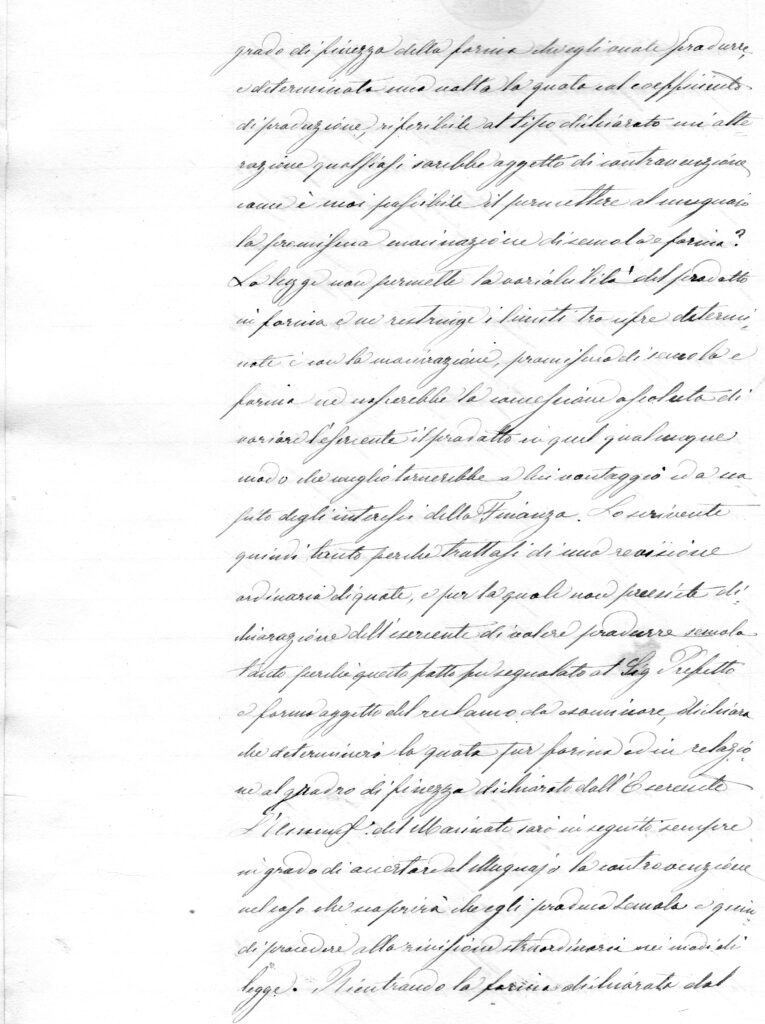 grado di finezza della farina che egli vuole produrre,
e determinata una volta la quota col coefficiente
di produzione, riferibile al tipo dichiarato un'alte-
razione qualsiasi sarebbe oggetto di contravenzione
come è mai possibile il permettere al mugnaio
la promiscua macinazione di semola e farina?
La legge non permette la variabilità del prodotto
in farina e ne restringe i limiti tra cifre determi-
nate e con la macinazione, promiscua di semola e
farina ne nascerebbe la concessione assoluta di
variare l'esercente il prodotto in quel qualunque
modo che meglio tornerebbe a lui vantaggio ed a sca
pito degli interessi della Finanza. Lo scrivente
quindi tanto perche trattasi di una revisione
ordinaria di quote, e per la quale non preesiste di-
chiarazione dell'esercente di volere produrre semola
tanto perche questo fatto fu segnalato al Sig Prefetto
e forma oggetto del reclamo da esaminare, dichiara
che determinerà la quota per farina ed in relazio
ne al grado di finezza dichiarato dall'Esercente
L'Ammin.e del Macinato sarà in seguito sempre
in grado di accertare al Mugnajo la contravenzione
nel caso che scoprirà che egli produca semola e quin
di procedere alla revisione straordinaria nei modi di
legge. Rientrando la farina dichiarata dal